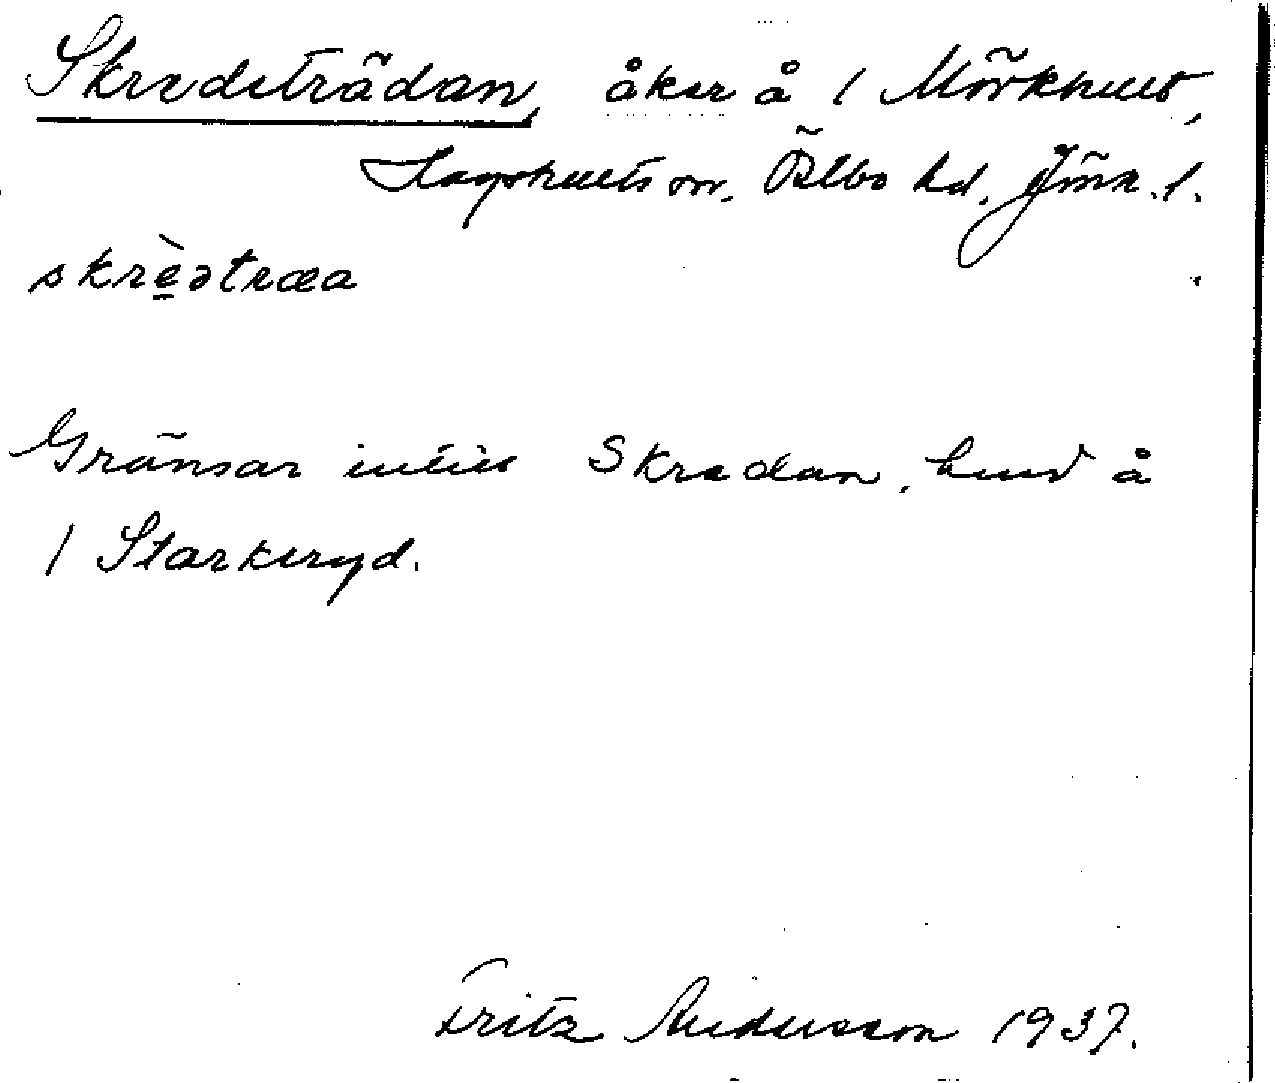 Skredeträdan, åker å 1 Mörkhult,
Hagshults sn. Östbo hd. Jönk. l.
skrèətræa
Gränsar intill Skredan, hmd å
1 Starkeryd.
Fritz Andersson 1937.